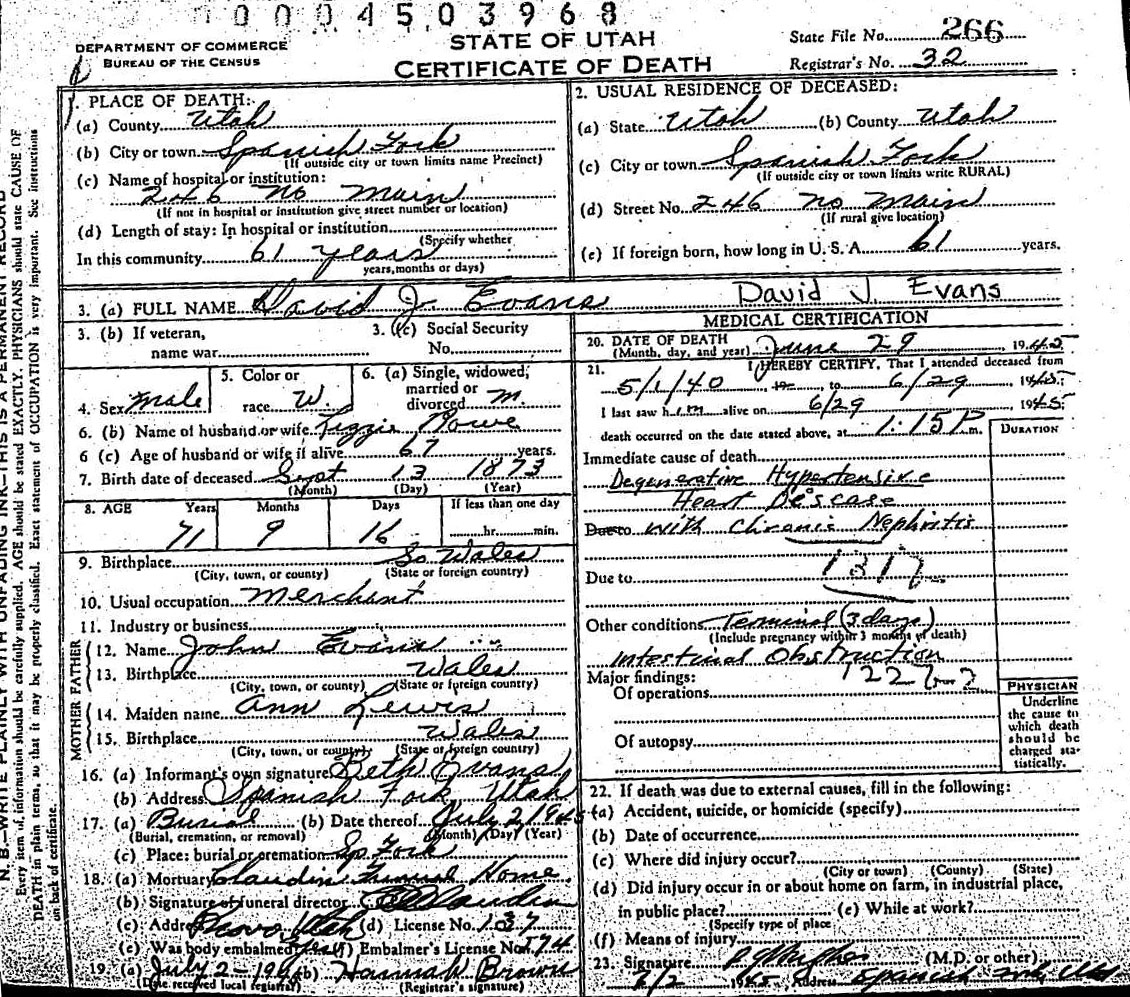 0 0 0 4 5 0 3 9 6 8
DEPARTMENT OF COMMERCE
BUREAU OF THE CENSUS
STATE OF UTAH
CERTIFICATE OF DEATH
State File No. 266
Registrar's No. 32
1. PLACE OF DEATH:
(a) County Utah
(b) City or town Spanish Fork
(If outside city or town limits name Precinct)
(c) Name of hospital or institution:
246 No Main
(If not in hospital or institution give street number or location)
(d) Length of stay: In hospital or institution
(Specify whether
In this community 61 years
years, months or days)
2. USUAL RESIDENCE OF DECEASED:
(a) State Utah (b) County Utah
(c) City or town Spanish Fork
(If outside city or town limits write RURAL)
(d) Street No. 246 No Main
(If rural give location)
(e) If foreign born, how long in U. S. A. 61 years.
3. (a) FULL NAME David J. Evans David J. Evans
3. (b) If veteran,
name war
3. (c) Social Security
No.
4. Sex Male
5. Color or
race W.
6. (a) Single, widowed,
married or
divorced M.
6. (b) Name of husband or wife Lizzie
6 (c) Age of husband or wife if alive 67 years.
7. Birth date of deceased Sept 13 1873
(Month) (Day) (Year)
8. AGE Years Months Days If less than one day
71 9 16 hr. min.
9. Birthplace So Wales
(City, town, or county) (State or foreign country)
10. Usual occupation Merchant
11. Industry or business
FATHER
12. Name John Evans
13. Birthplace Wales
(City, town, or county) (State or foreign country)
MOTHER
14. Maiden name Ann Lewis
15. Birthplace Wales
(City, town, or county) (State or foreign country)
16. (a) Informant's own signature Beth Evans
(b) Address Spanish Fork Utah
17. (a) Burial (b) Date thereof July 2 1945
(Burial, cremation, or removal) (Month) (Day) (Year)
(c) Place: burial or cremation Sp. Fork
18. (a) Mortuary Claudin Funeral Home
(b) Signature of funeral director Claudin
(c) Address Provo, Utah (d) License No. 137
(e) Was body embalmed Yes (f) Embalmer's License No. 594
19. (a) July 2- (b) Hannah Brown
(Date received local registrar) (Registrar's signature)
MEDICAL CERTIFICATION
20. DATE OF DEATH
(Month, day, and year) June 29 1945
21. I HEREBY CERTIFY, That I attended deceased from
5/1/40 19 to 6/29 1945
I last saw him alive on 6/29 1945
death occurred on the date stated above, at 1:15 P m.
DURATION
Immediate cause of death
Degenerative Hypertensive
Heart Disease
Due to With Chronic Nephritis
131
Due to
Other conditions Terminal (3 days)
(Include pregnancy within 3 months of death)
Intestinal Obstruction
Major findings:
Of operations
Of autopsy
PHYSICIAN
Underline
the cause to
which death
should be
charged sta-
tistically.
22. If death was due to external causes, fill in the following:
(a) Accident, suicide, or homicide (specify)
(b) Date of occurrence
(c) Where did injury occur?
(City or town) (County) (State)
(d) Did injury occur in or about home on farm, in industrial place,
in public place? (e) While at work?
(Specify type of place
(f) Means of injury
23. Signature (M.D. or other)
1945 Address Spanish Fork Utah
N.B.—WRITE PLAINLY WITH UNFADING INK—THIS IS A PERMANENT RECORD
Every item of information should be carefully supplied. AGE should be stated EXACTLY. PHYSICIANS should state CAUSE OF
DEATH in plain terms, so that it may be properly classified. Exact statement of OCCUPATION is very important. See instructions
on back of certificate.